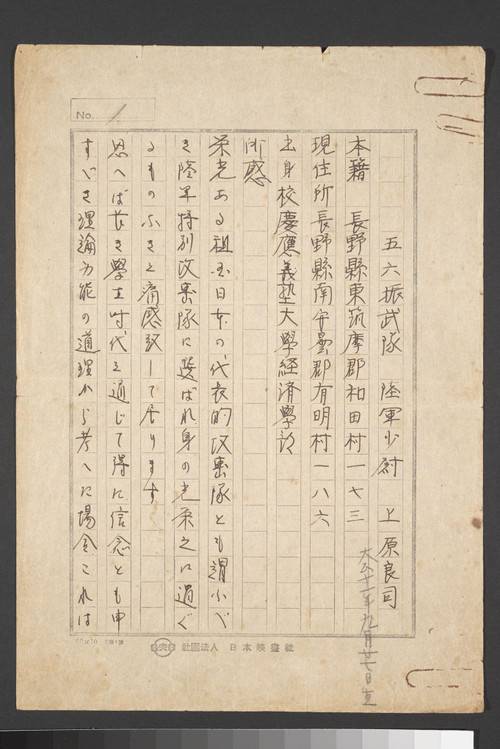 No. 1
五六振武隊　陸軍少尉　上原良司
大正十一年九月廿七日生
本籍　長野縣東筑摩郡和田村一七三
現住所　長野縣南安曇郡有明村一八六
出身校　慶應義塾大學経済學部
所感
栄光ある祖国日本の代表的攻撃隊とも謂ふべ
き陸軍特別攻撃隊に選ばれ身の光栄之に過ぐ
るものなきと痛感致して居ります
思へば長き學生時代を通じて得た信念とも申
すべき理論万能の道理から考へた場合これは
社団法人 日本映畫社